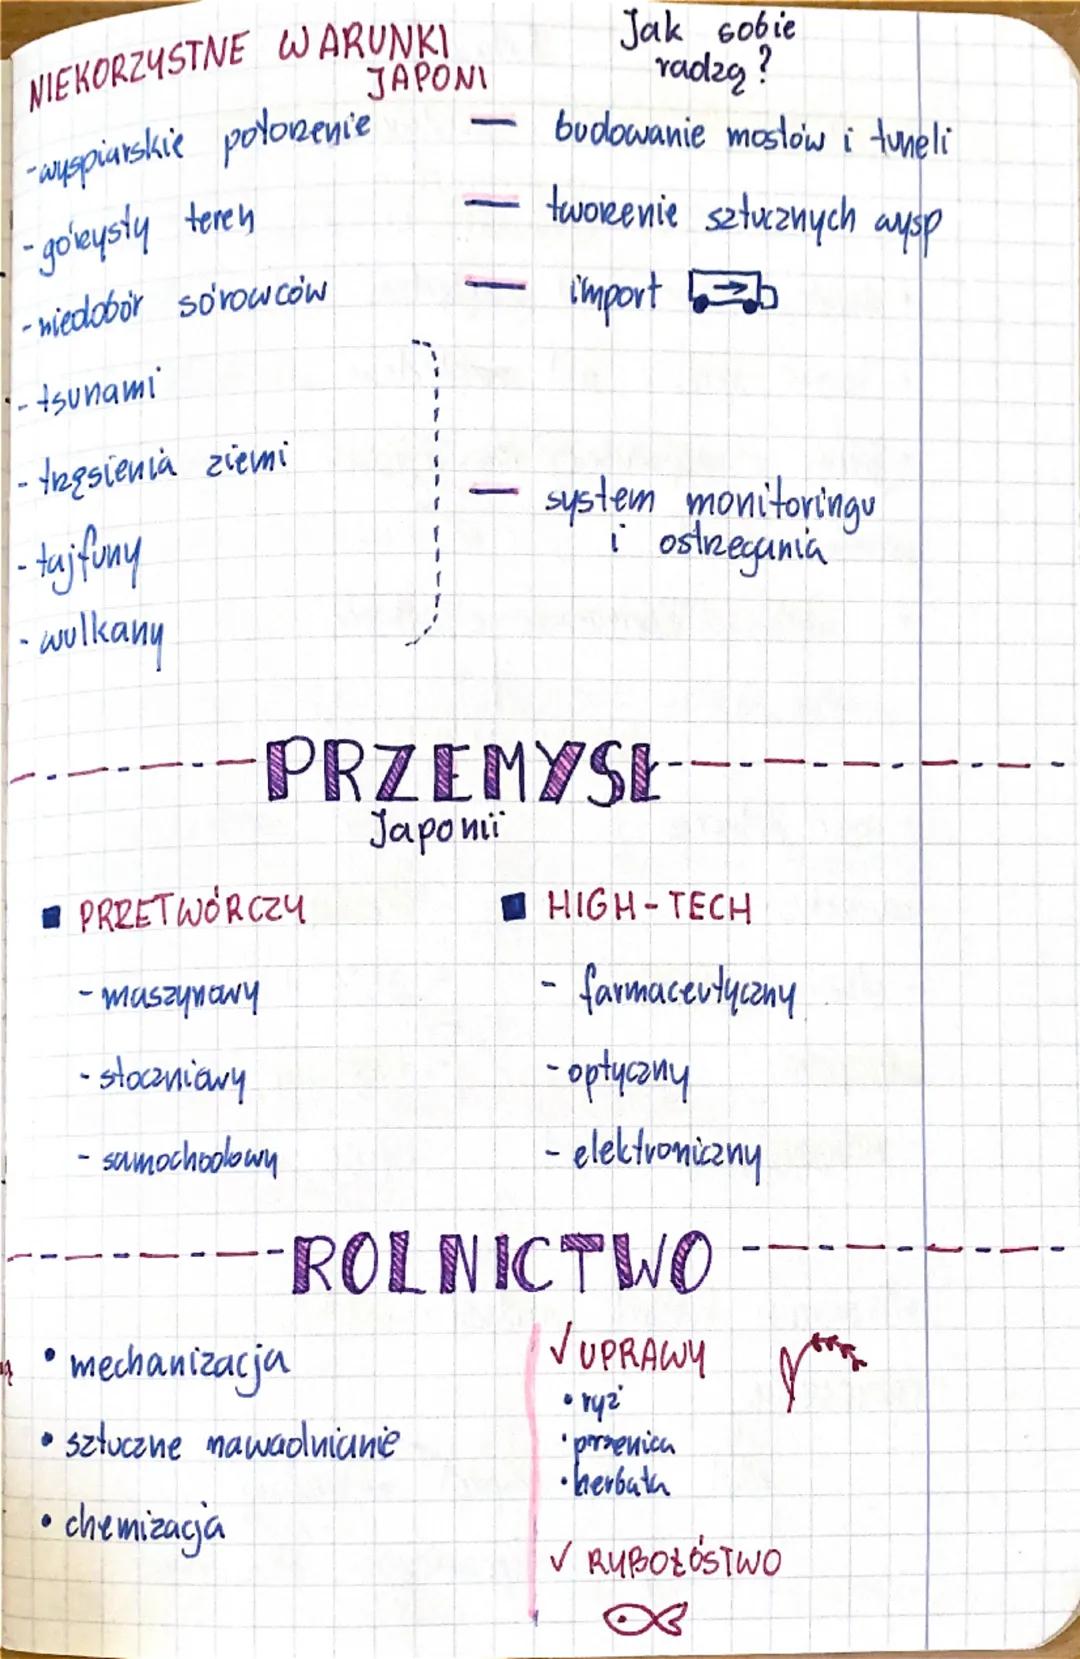 NIEKORZYSTNE WARUNKI
JAPONI
Jak sobie
radzą?
- wyspiarskie położenie — budowanie mostów i tuneli
- górzysty teren — tworzenie sztucznych wysp
- niedobór sórowców — import
- tsunami
- trzęsienia ziemi
— system monitoringu
i ostrzegania
- tajfuny
- wulkany
PRZEMYSŁ
Japonii
PRZETWÓRCZY
- maszynowy
- stoczniowy
- samochodowy
HIGH-TECH
- farmaceutyczny
- optyczny
- elektroniczny
ROLNICTWO
• mechanizacja
• sztuczne nawadnianie
• chemizacja
✓ UPRAWY
• ryż
• pszenica
• herbata
✓ RYBOŁÓSTWO